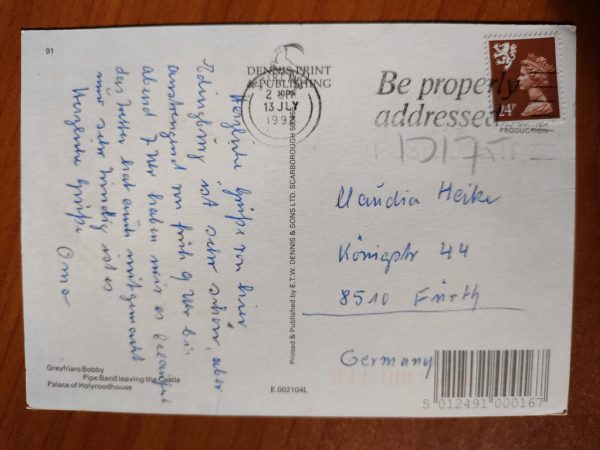 91
Herzliche Grüße von hier
Edingburg ist sehr schön, aber
anstrengend von früh 9 Uhr bis
abend 7 Uhr haben
das Wetter hat auch mitgemacht
nur sehr windig ist es
Herzliche Grüße
Oma
Greyfriars Bobby
Pipe Band leaving the Castle
Palace of Holyroodhouse
DENNIS PRINT
& PUBLISHING
13 JLY
Printed & Published by E.T.W. DENNIS & SONS LTD. SCARBOROUGH
E.002104L
Be properly
addressed
24P
PRODUCTION
Claudia Heike
Königstr 44
8510 Fürth
Germany
5 012491 000167